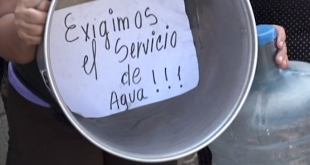 Exigimos
el Servicio
de
Agua !!!